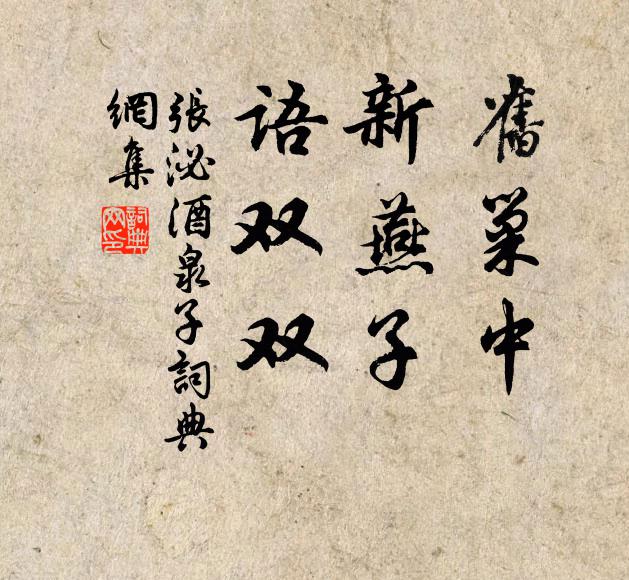 舊巢中
新燕子
语双双
張泌酒泉子詞典
網集
詞典
网印